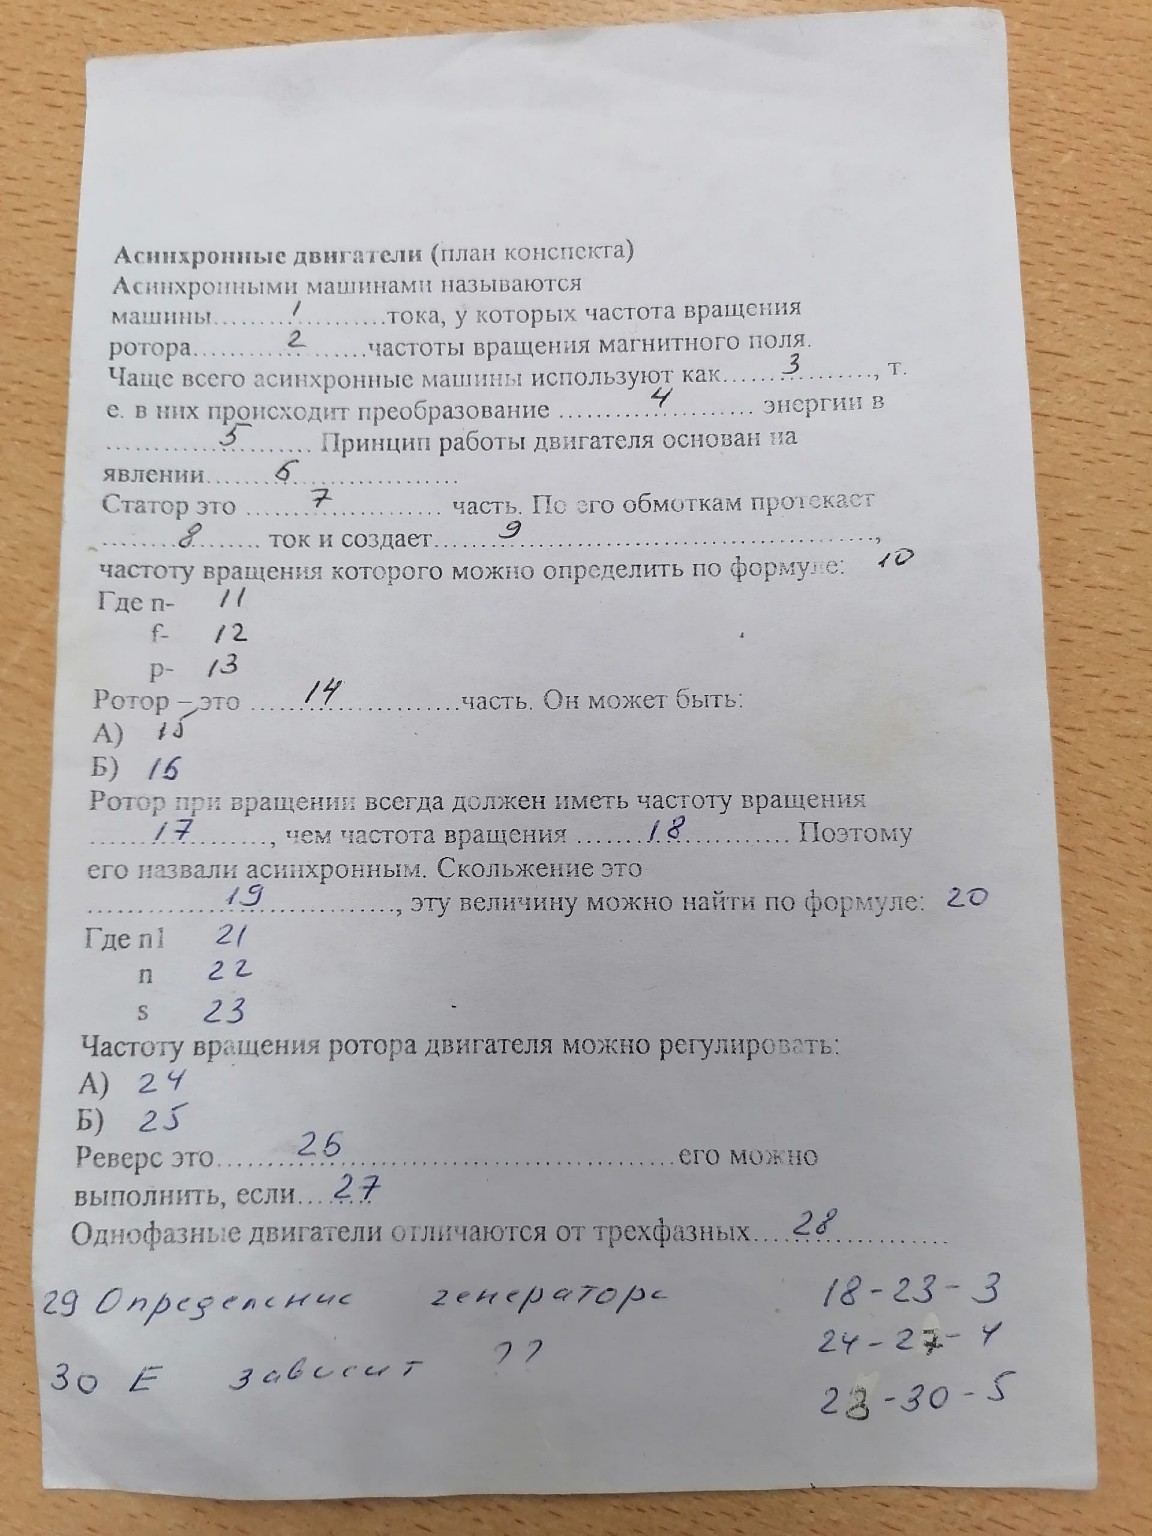 Асинхронные двигатели (план конспекта)
Асинхронными машинами называются
машины.........1...........тока, у которых частота вращения
ротора...........2........частоты вращения магнитного поля.
Чаще всего асинхронные машины используют как.......3........, т.
е. в них происходит преобразование .........4.......... энергии в
..........5.......... Принцип работы двигателя основан на
явлении........6....................
Статор это ........7............ часть. По его обмоткам протекает
........8....... ток и создает.......9......................................,
частоту вращения которого можно определить по формуле: 10
Где n- 11
f- 12
p- 13
Ротор – это .......14..............часть. Он может быть:
А) 15
Б) 16
Ротор при вращении всегда должен иметь частоту вращения
.......17........, чем частота вращения .......18.......... Поэтому
его назвали асинхронным. Скольжение это
..............19..............., эту величину можно найти по формуле: 20
Где n1 21
n 22
s 23
Частоту вращения ротора двигателя можно регулировать:
А) 24
Б) 25
Реверс это.........26....................................его можно
выполнить, если....27
Однофазные двигатели отличаются от трехфазных....28.............
29 Определение генератора
18-23-3
24-27-4
30 Е зависит ??
28-30-5